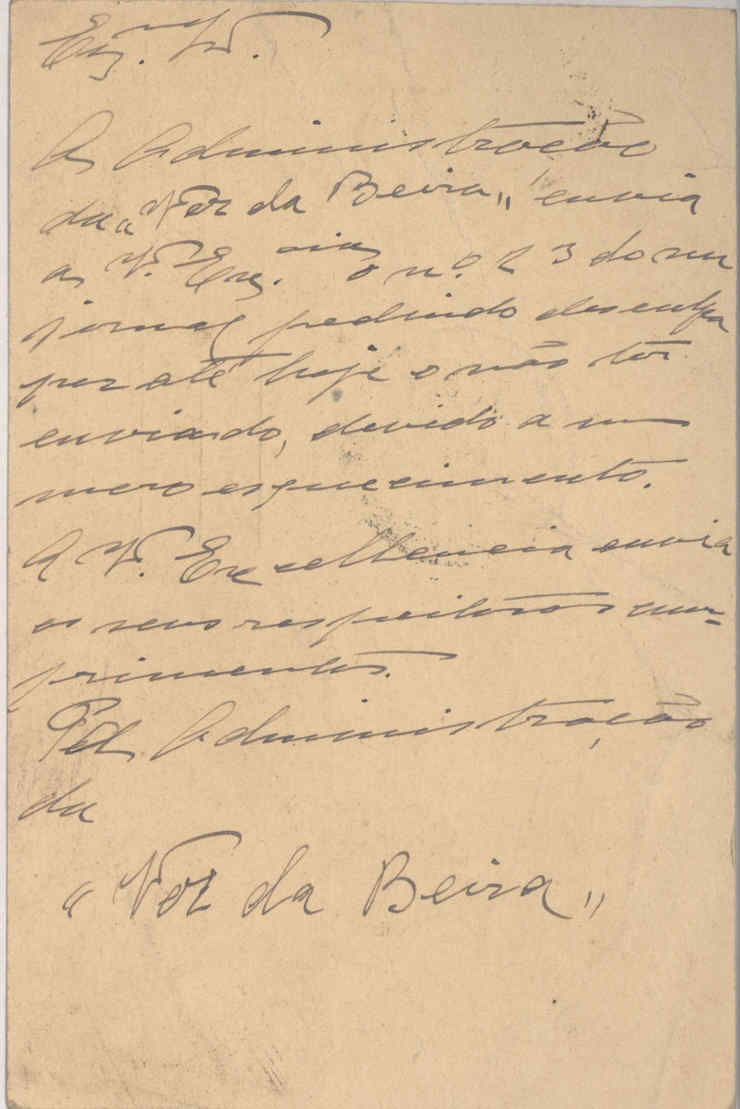 Exm.º Sr.
A Administração
da "Voz da Beira" envia
a V. Exc.cia o n.º 23 do seu
jornal pedindo desculpa
por até hoje o não ter
enviado, devido a um
mero esquecimento.
A V. Excellencia envia
os seus respeitosos cum-
primentos.
Pel'A Administração
da
"Voz da Beira"